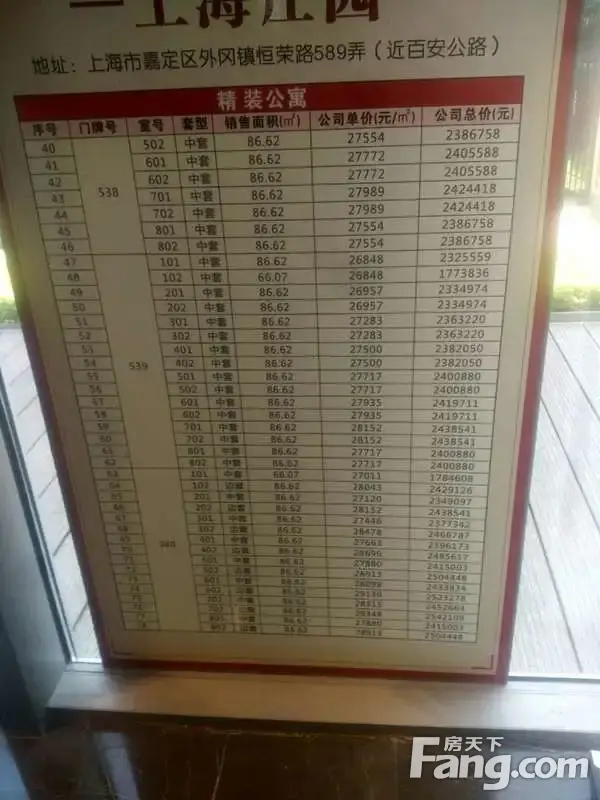 上海庄园
地址：上海市嘉定区外冈镇恒荣路589弄（近百安公路）
精装公寓
序号 门牌号 室号 套型 销售面积(㎡) 公司单价(元/㎡) 公司总价(元)
40 502 中套 86.62 27554 2386758
41 601 中套 86.62 27772 2405588
42 602 中套 86.62 27772 2405588
43 538 701 中套 86.62 27989 2424418
44 702 中套 86.62 27989 2424418
45 801 中套 86.62 27554 2386758
46 802 中套 86.62 27554 2386758
47 101 中套 86.62 26848 2325559
48 102 中套 66.07 26848 1773836
49 201 中套 86.62 26957 2334974
50 202 中套 86.62 26957 2334974
51 301 中套 86.62 27283 2363220
52 302 中套 86.62 27283 2363220
53 401 中套 86.62 27500 2382050
54 539 402 中套 86.62 27500 2382050
55 501 中套 86.62 27717 2400880
56 502 中套 86.62 27717 2400880
57 601 中套 86.62 27935 2419711
58 602 中套 86.62 27935 2419711
59 701 中套 86.62 28152 2438541
60 702 中套 86.62 28152 2438541
61 801 中套 86.62 27717 2400880
62 802 中套 86.62 27717 2400880
63 101 中套 66.07 27011 1784608
64 102 边套 86.62 28043 2429126
65 201 中套 86.62 27120 2349097
66 202 边套 86.62 28152 2438541
67 301 中套 86.62 27446 2377342
68 302 边套 86.62 28478 2466787
69 401 中套 86.62 27663 2396173
402 边套 86.62 28696 2485617
501 中套 86.62 27880 2415003
502 边套 86.62 28913 2504448
601 中套 86.62 2433834
86.62 2523278
86.62 2452664
86.62 2542109
86.62 27880 2415003
802 边套 86.62 28913 2504448
房天下
Fang.com